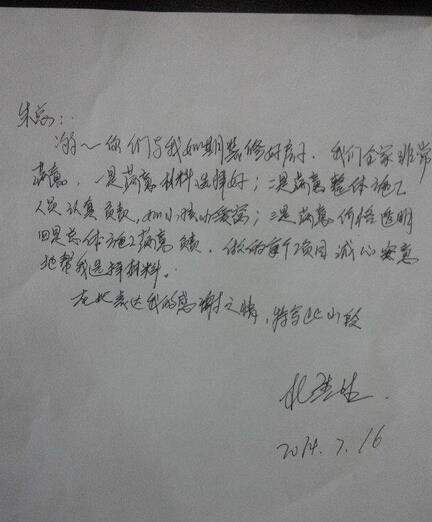 朱总：
你们与我如期装修好房子。我们全家非常
满意。一是满意材料选择好；二是满意整体施工
人员认真负责，如小；三是满意价格透明
四是总体施工满意负责。做的每个项目诚心实意
地帮我选择材料。
在此表达我的感谢之情，特写此
2014.7.16